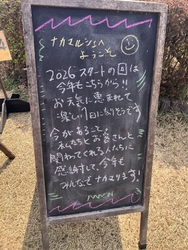 ナカマルシェへ
ようこそ
2026 スタートの回は
今年もこちらから!!
お天気に恵まれて
楽しい1日になりそうです
今があること、
私たちとお客さんと
関わってくれる人たちに
感謝して、今年も
みんなでナカマります!